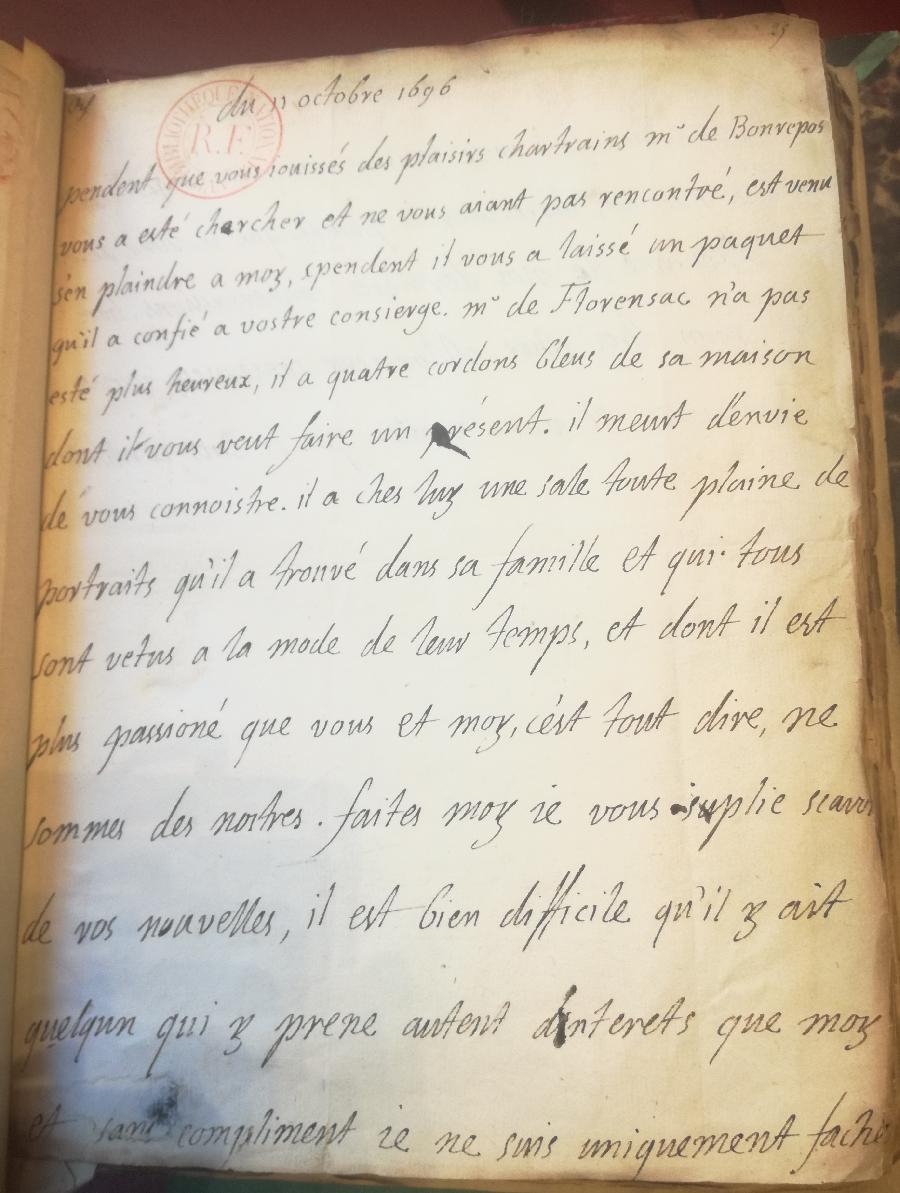 du 11 octobre 1696
pendent que vous iouissés des plaisirs chartrains mr de Bonrepos
vous a esté charcher et ne vous aiant pas rencontré, est venu
s'en plaindre a moy, spendent il vous a laissé un paquet
qu'il a confié a vostre consierge. mr de Florensac n'a pas
esté plus heureux, il a quatre cordons bleus de sa maison
dont il vous veut faire un présent. il meurt d'envie
de vous connoistre. il a ches luy une sale toute plaine de
portraits qu'il a trouvé dans sa famille et qui tous
sont vetus a la mode de leur temps, et dont il est
plus passioné que vous et moy, c'est tout dire, ne
sommes des nostres. faites moy ie vous suplie scavoir
de vos nouvelles, il est bien difficile qu'il y ait
quelqun qui y prene autent d'interets que moy
et sans compliment ie ne suis uniquement faché
BIBLIOTHEQUE NATIONALE
R.F.